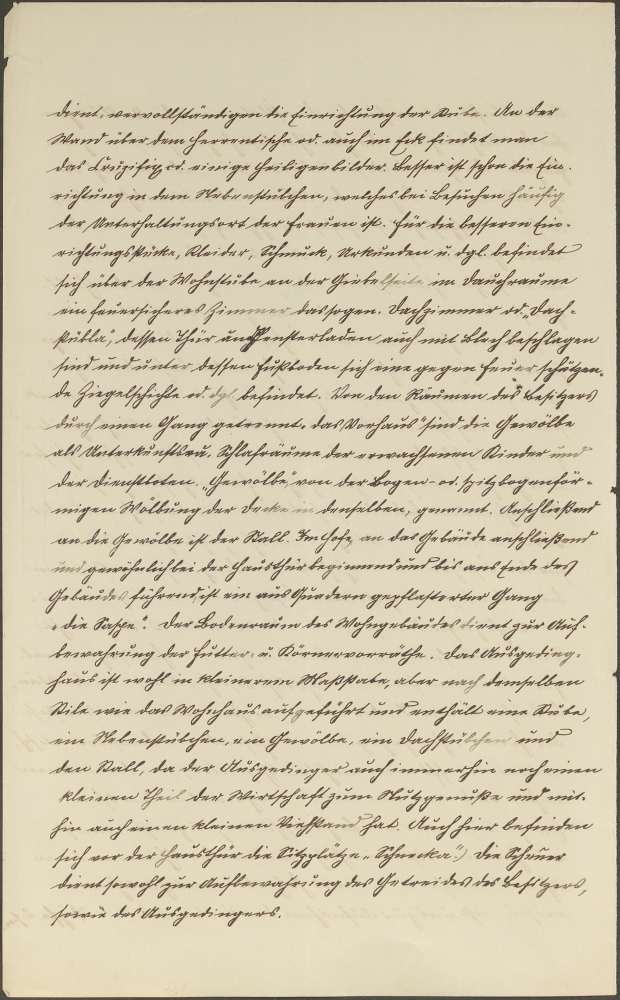 dient, vervollständigen die Einrichtung der Stube. An der
Wand über dem Herrentische od. auch im Eck findet man
das Crucifix, od. einige Heiligenbilder. Besser ist schon die Ein-
richtung in dem Nebenstübchen, welches bei Besuchen häufig
der Unterhaltungsort der Frauen ist. Für die besseren Ein-
richtungsstücke, Kleider, Schmuck, Urkunden u. dgl. befindet
sich über der Wohnstube an der Giebelseite im Dachraume
ein feuersicheres Zimmer das sogen. Dachzimmer od. „Dach-
stübla“, dessen Thür und Fensterladen auch mit Blech beschlagen
sind und unter dessen Fußboden sich eine gegen Feuer schützen-
de Ziegelschichte od. dgl. befindet. Von den Räumen des Besitzers
durch einen Gang getrennt, „das Vorhaus“ sind die Gewölbe
als Unterkunfts- u. Schlafräume der erwachsenen Kinder und
der Dienstboten. „Gewölbe“ von der Bogen- od. spitzbogenför-
migen Wölbung der Decke in denselben, genannt. Anschließend
an die Gewölbe ist der Stall. Im Hofe, an das Gebäude anschließend
und gewöhnlich bei der Hausthür beginnend und bis ans Ende des
Gebäudes führend, ist ein aus Quadern gepflasterter Gang
„die Saspe“. Der Bodenraum des Wohngebäudes dient zur Auf-
bewahrung der Futter- u. Körnervorräthe. Das Ausgeding-
haus ist wohl in kleinerem Maßstabe, aber nach demselben
Stile wie das Wohnhaus aufgeführt und enthält eine Stube,
ein Nebenstübchen, ein Gewölbe, ein Dachstübchen und
den Stall, da der Ausgedinger auch immerhin noch einen
kleinen Theil der Wirtschaft zum Nutzgenuße und mit-
hin auch einen kleinen Viehstand hat. Auch hier befinden
sich vor der Hausthür die Sitzplätze „Schnecka“.) Die Scheuer
dient sowohl zur Aufbewahrung des Getreides des Besitzers,
sowie des Ausgedingers.